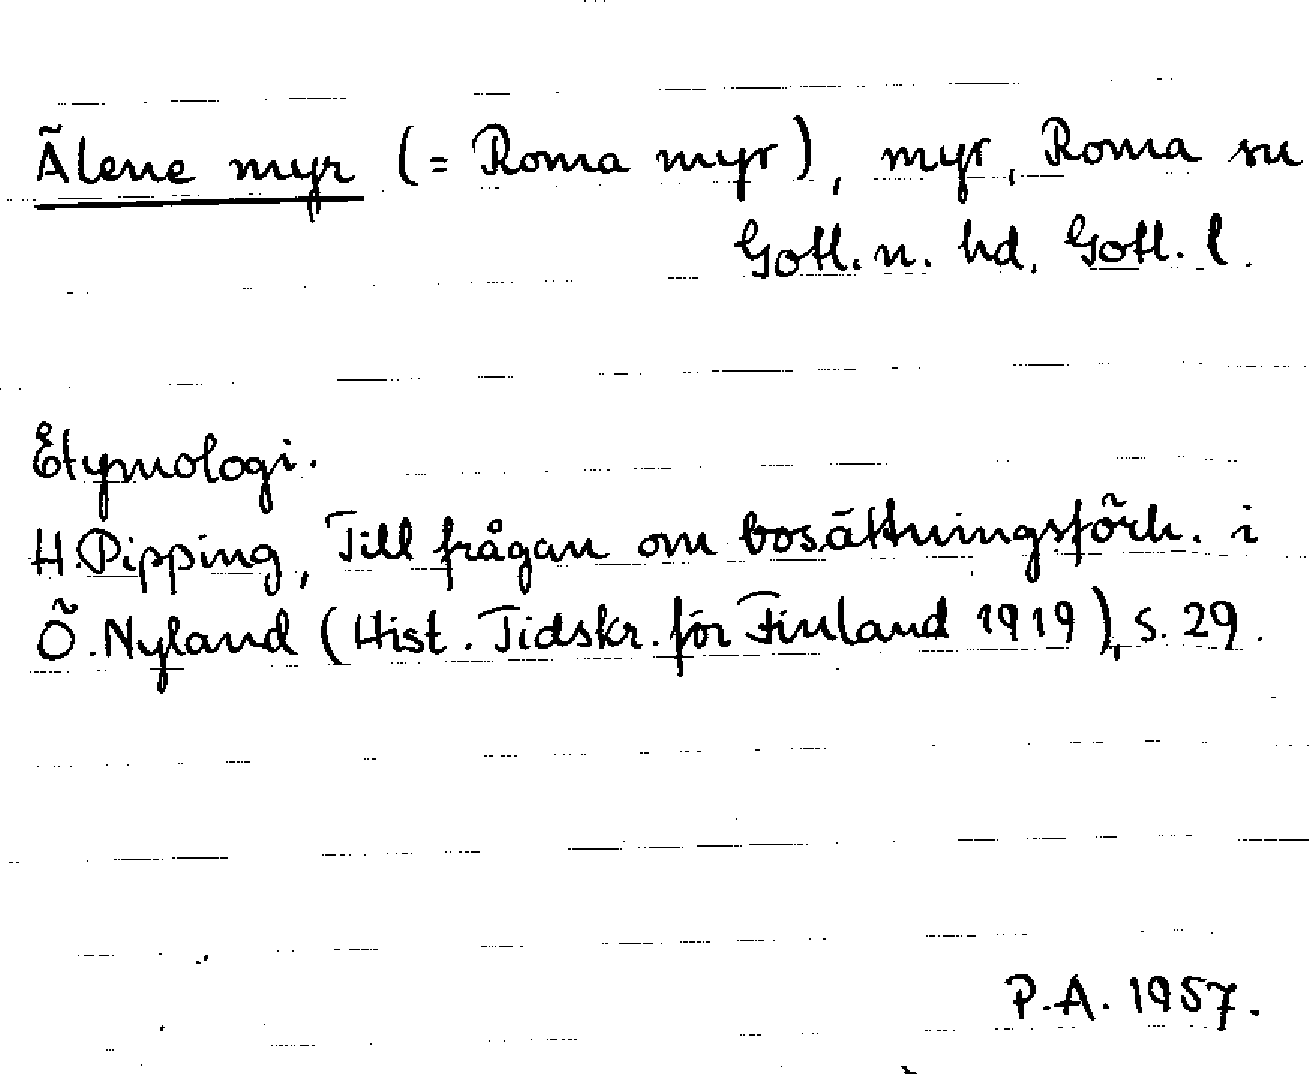 Älene myr (= Roma myr), myr, Roma sn
Gotl. n. hd, Gotl. l.
Etymologi.
H. Pipping, Till frågan om bosättningsförh. i
Ö. Nyland (Hist. Tidskr. för Finland 1919), s. 29.
P.A. 1957.